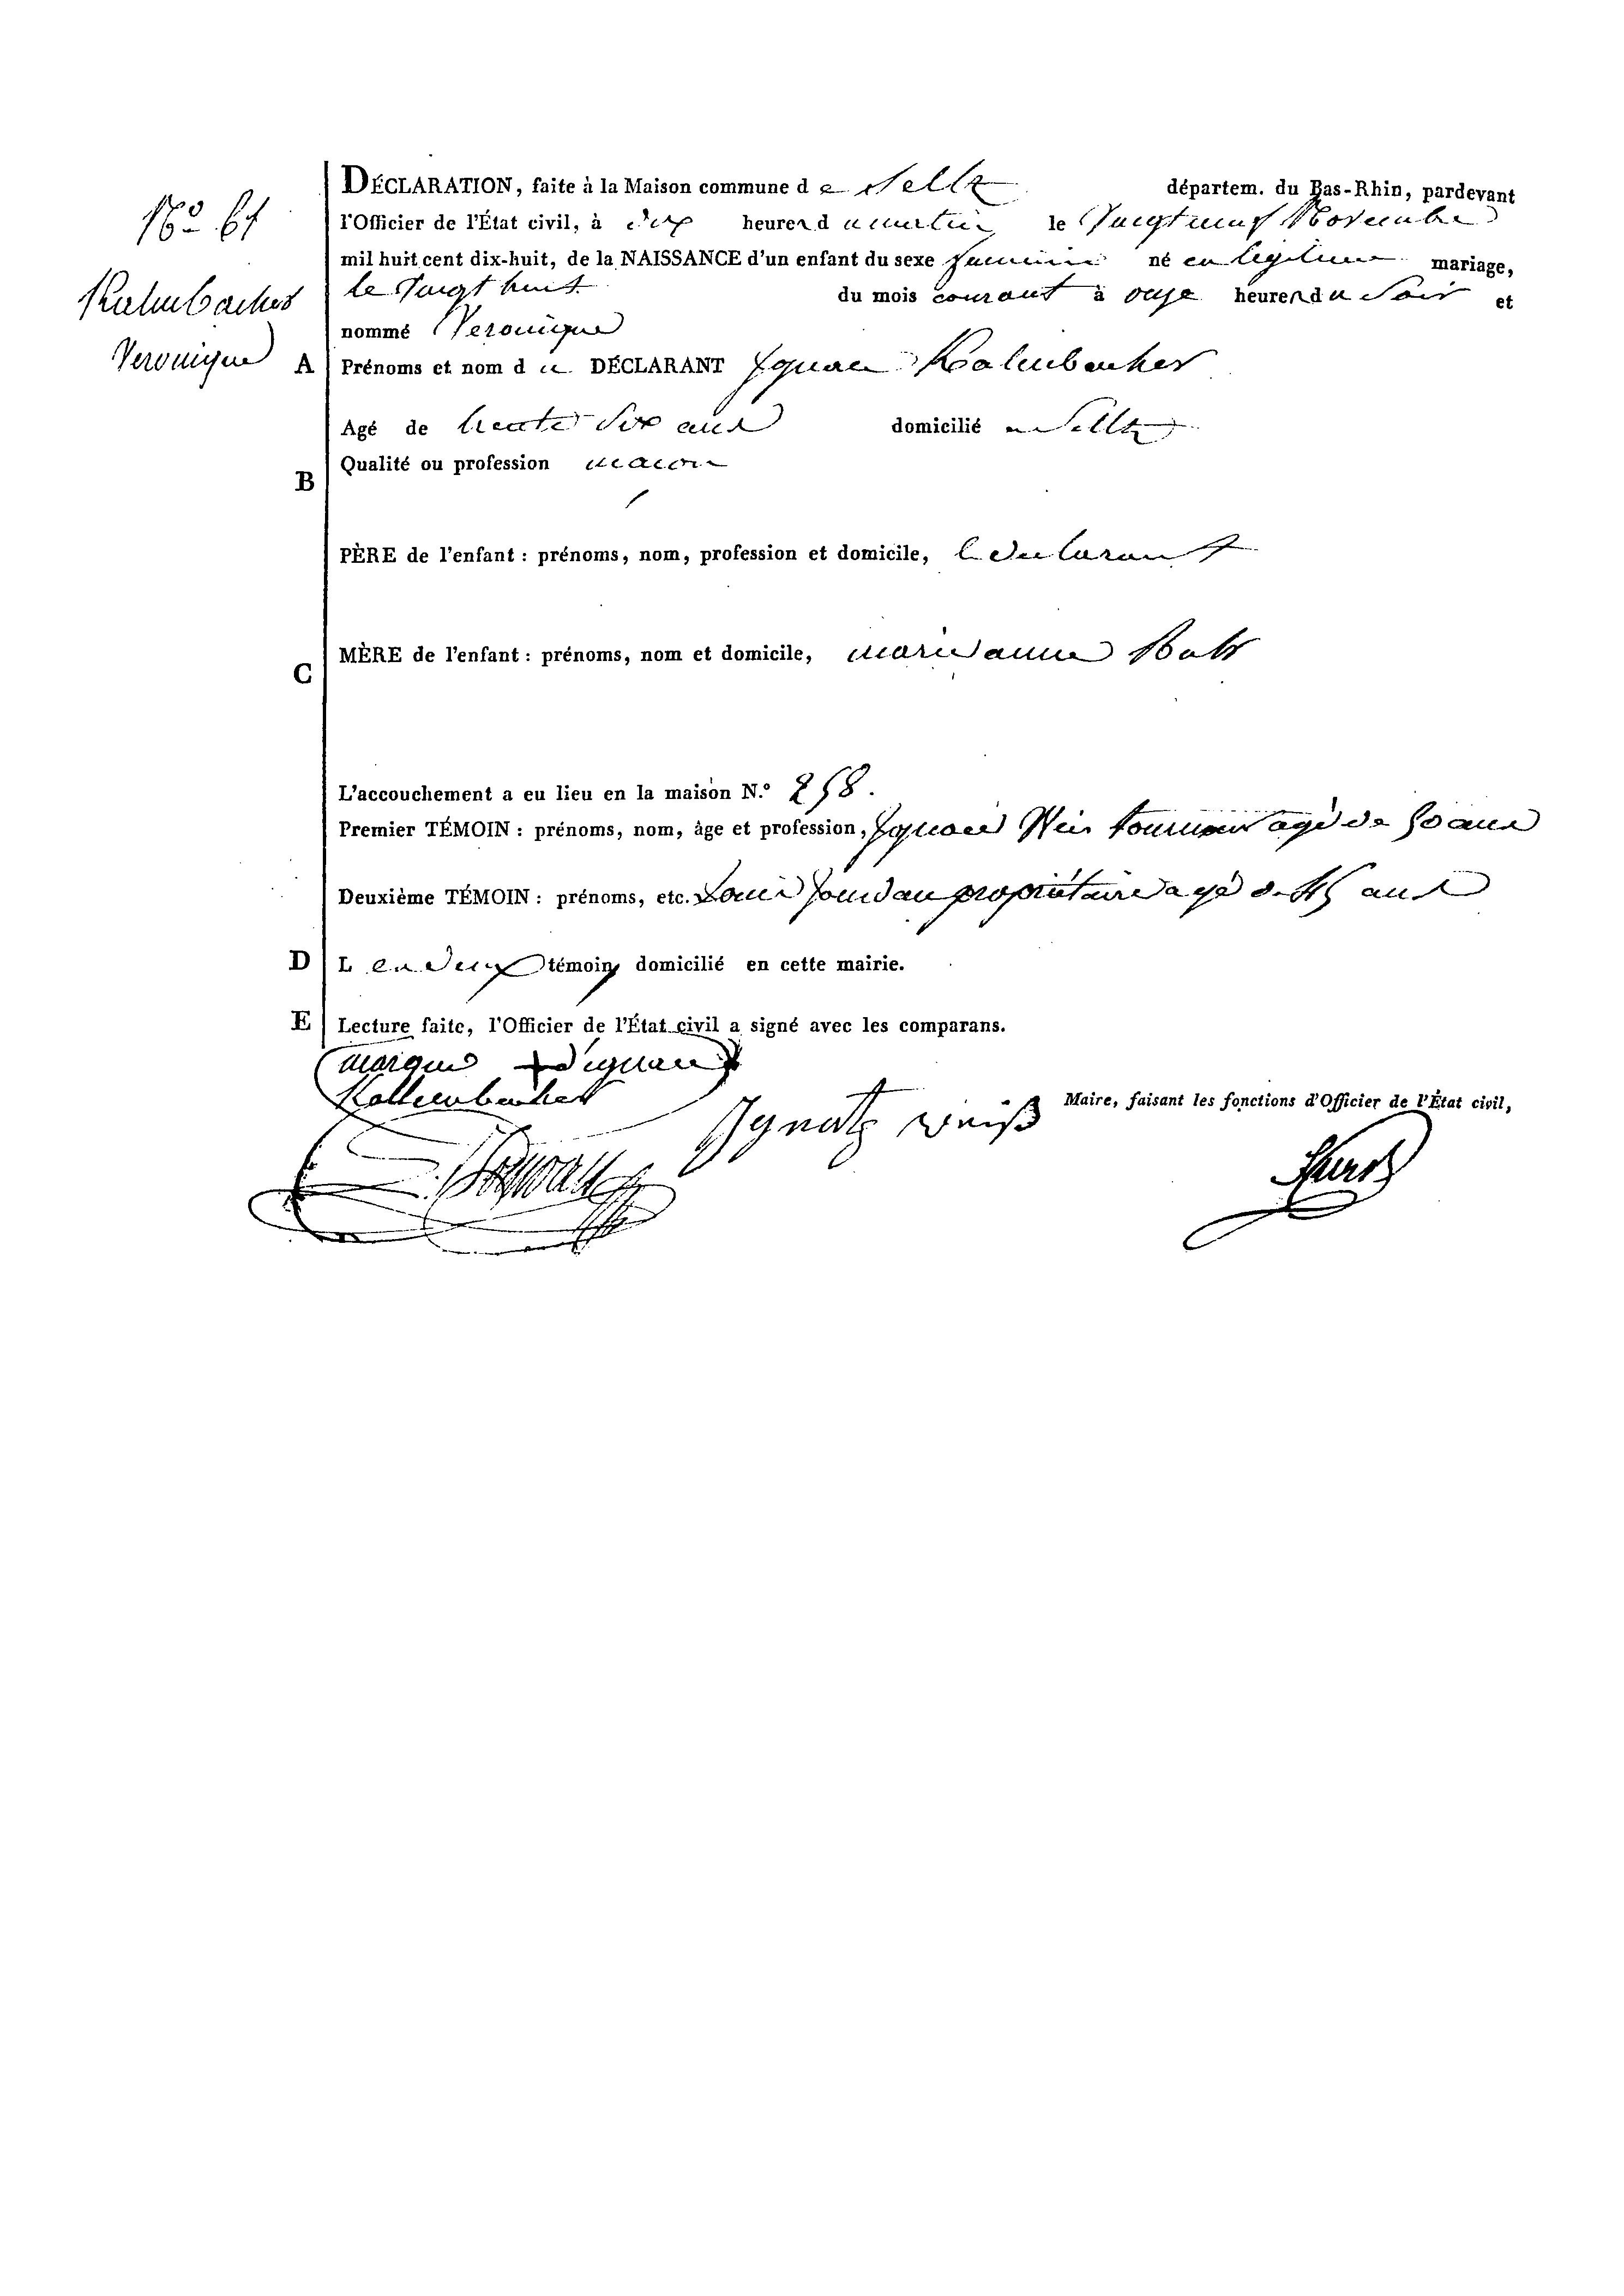 N.º 61
Kalmbacher
Veronique
DÉCLARATION, faite à la Maison commune de Seltz départem. du Bas-Rhin, pardevant
l'Officier de l'État civil, à dix heures du matin le vingt neuf Novembre
mil huit cent dix-huit, de la NAISSANCE d'un enfant du sexe feminin né en legitime mariage,
le vingt huit du mois courant à onze heures du Soir et
nommé Veronique
A Prénoms et nom du DÉCLARANT Ignace Kalmbacher
Agé de trente Six ans domicilié a Seltz
Qualité ou profession macon
B
PÈRE de l'enfant : prénoms, nom, profession et domicile, le declarant
MÈRE de l'enfant : prénoms, nom et domicile, marie anne
C
L'accouchement a eu lieu en la maison N.º 258.
Premier TÉMOIN : prénoms, nom, âge et profession, Ignace Weis tourneur agé de 50 ans
Deuxième TÉMOIN : prénoms, etc. Louis Jourdan propriétaire agé de 45 ans
D L es deux témoins domicilié en cette mairie.
E Lecture faite, l'Officier de l'État civil a signé avec les comparans.
marque + d'ignace
Kallembacher
Maire, faisant les fonctions d'Officier de l'État civil,
Ignatz Weiß
Jourdan